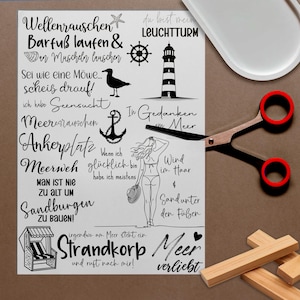 Wellenrauschen
Barfuß laufen &
in Muscheln lauschen
du bist mein
LEUCHTTURM
Sei wie eine Möwe...
scheiß drauf!
ich habe Seensucht
Meeresrauschen
In Gedanken
am Meer
Ankerplatz
Meerweh
Wenn ich
glücklich bin
habe ich meistens
Wind
im Haar
&
Sand unter
den Füßen
MAN IST NIE
ZU ALT UM
Sandburgen
ZU BAUEN!
irgendwo am Meer steht ein
Strandkorb
und ruft nach mir!
Meer
verliebt